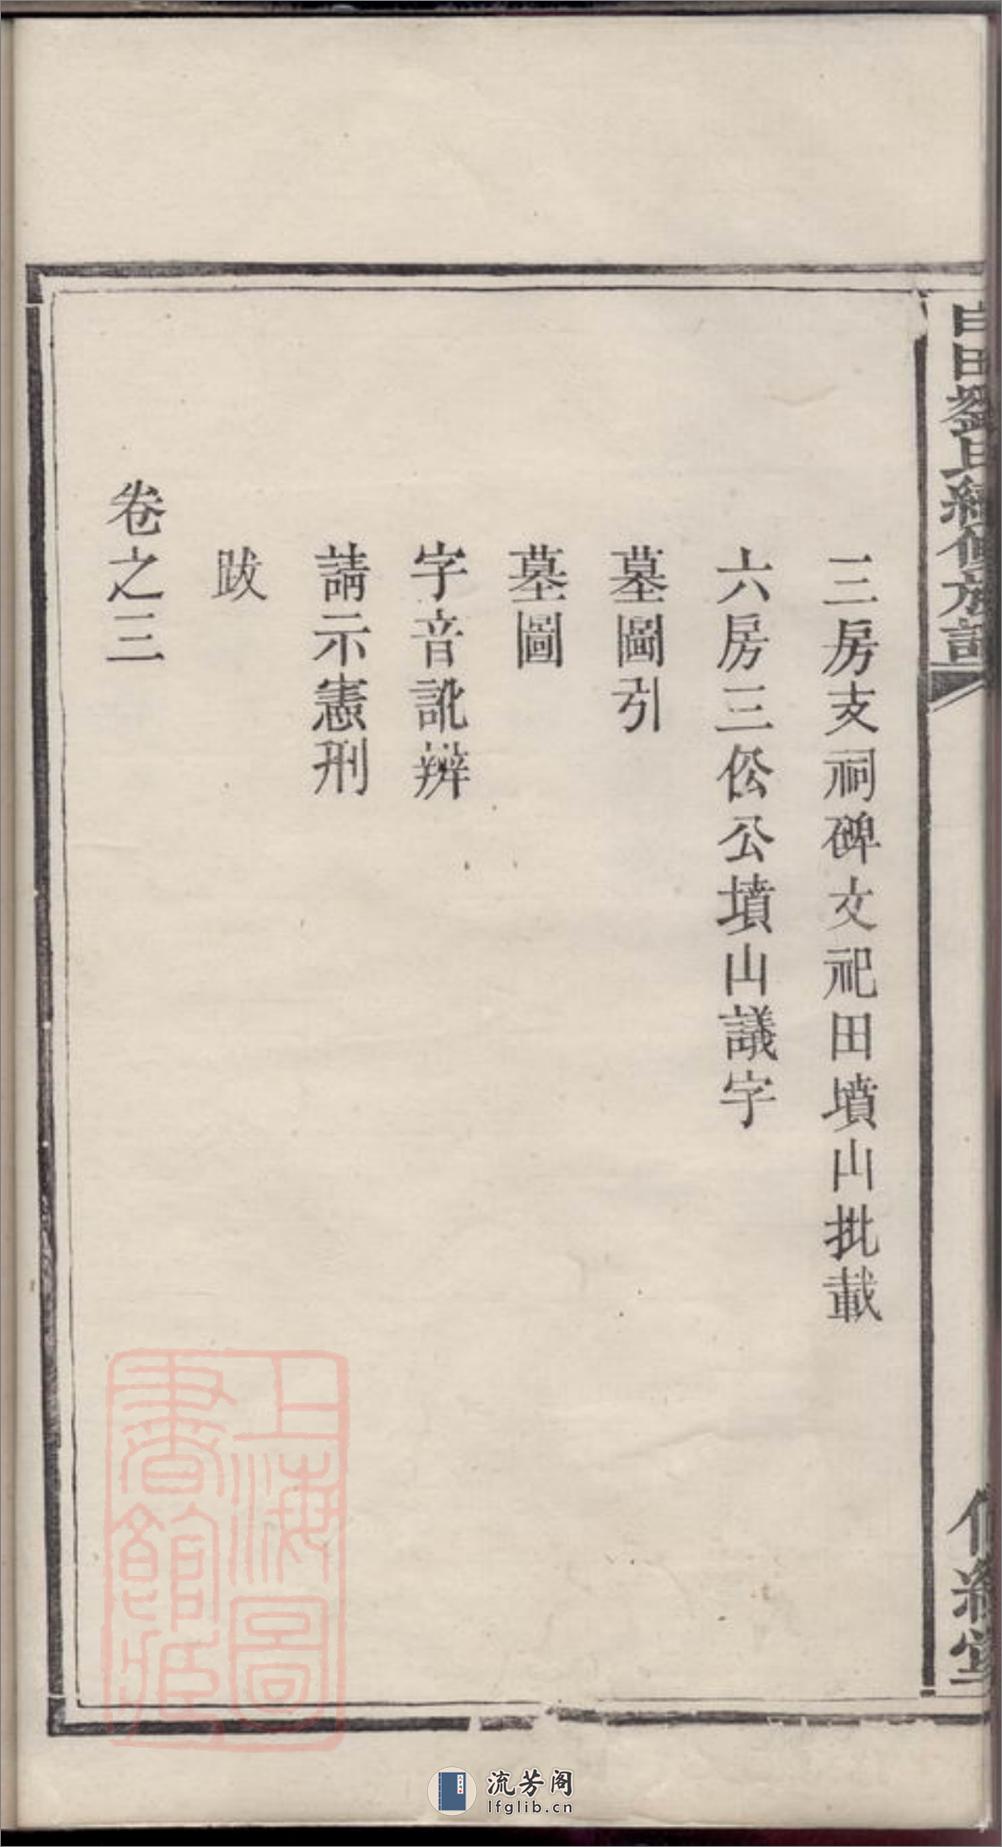 白田劉氏續修族譜
三房支祠碑文祀田墳山批載
六房三伀公墳山議字
墓圖引
墓圖
字音訛辨
請示憲刑
跋
卷之三
上海圖
書館藏
流芳阁
lfglib.cn